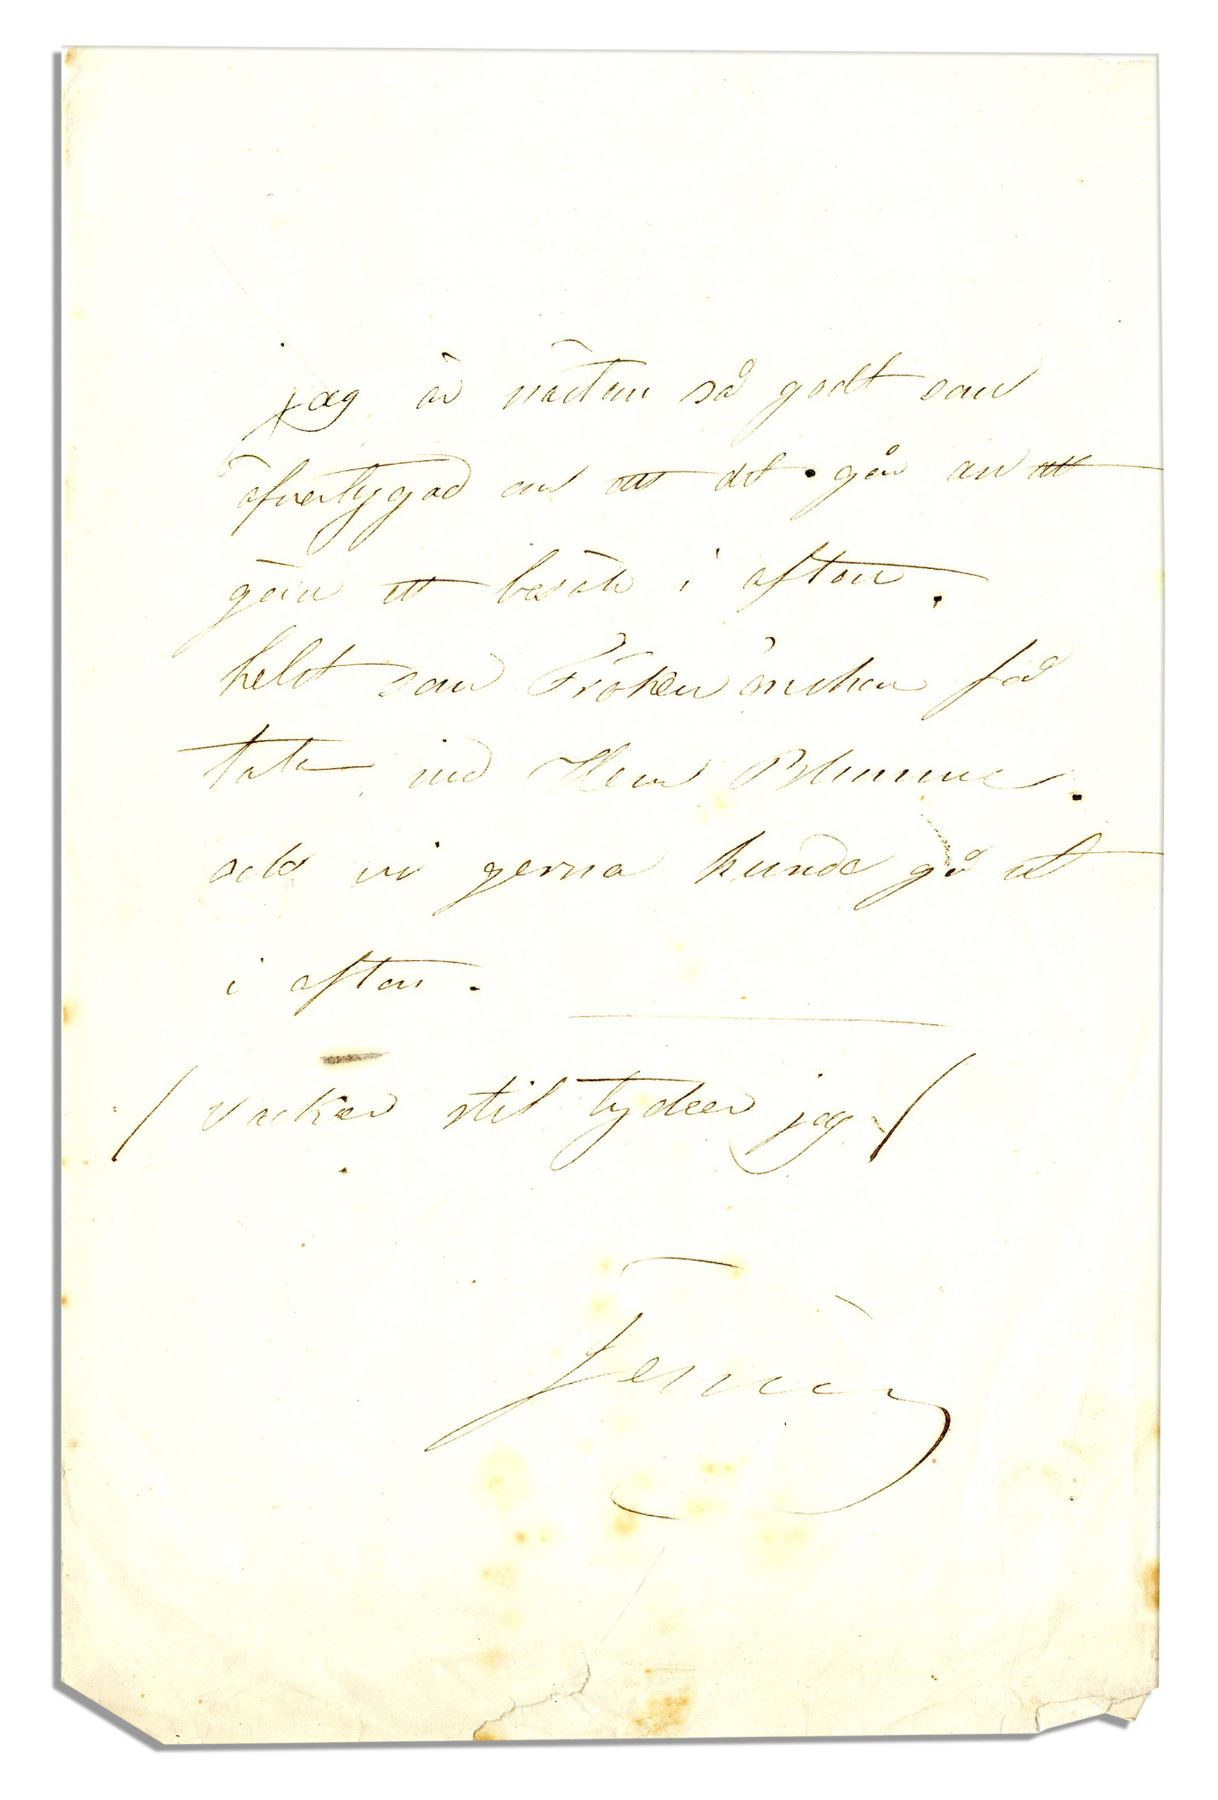 jag är nästan så godt som
öfvertygad om att det går an att
göra ett besök i afton.
helst som Fröken önskar få
tala med Herr
och vi gerna kunde gå ut
i afton.
(vacker stil tyder jag)
Jenny